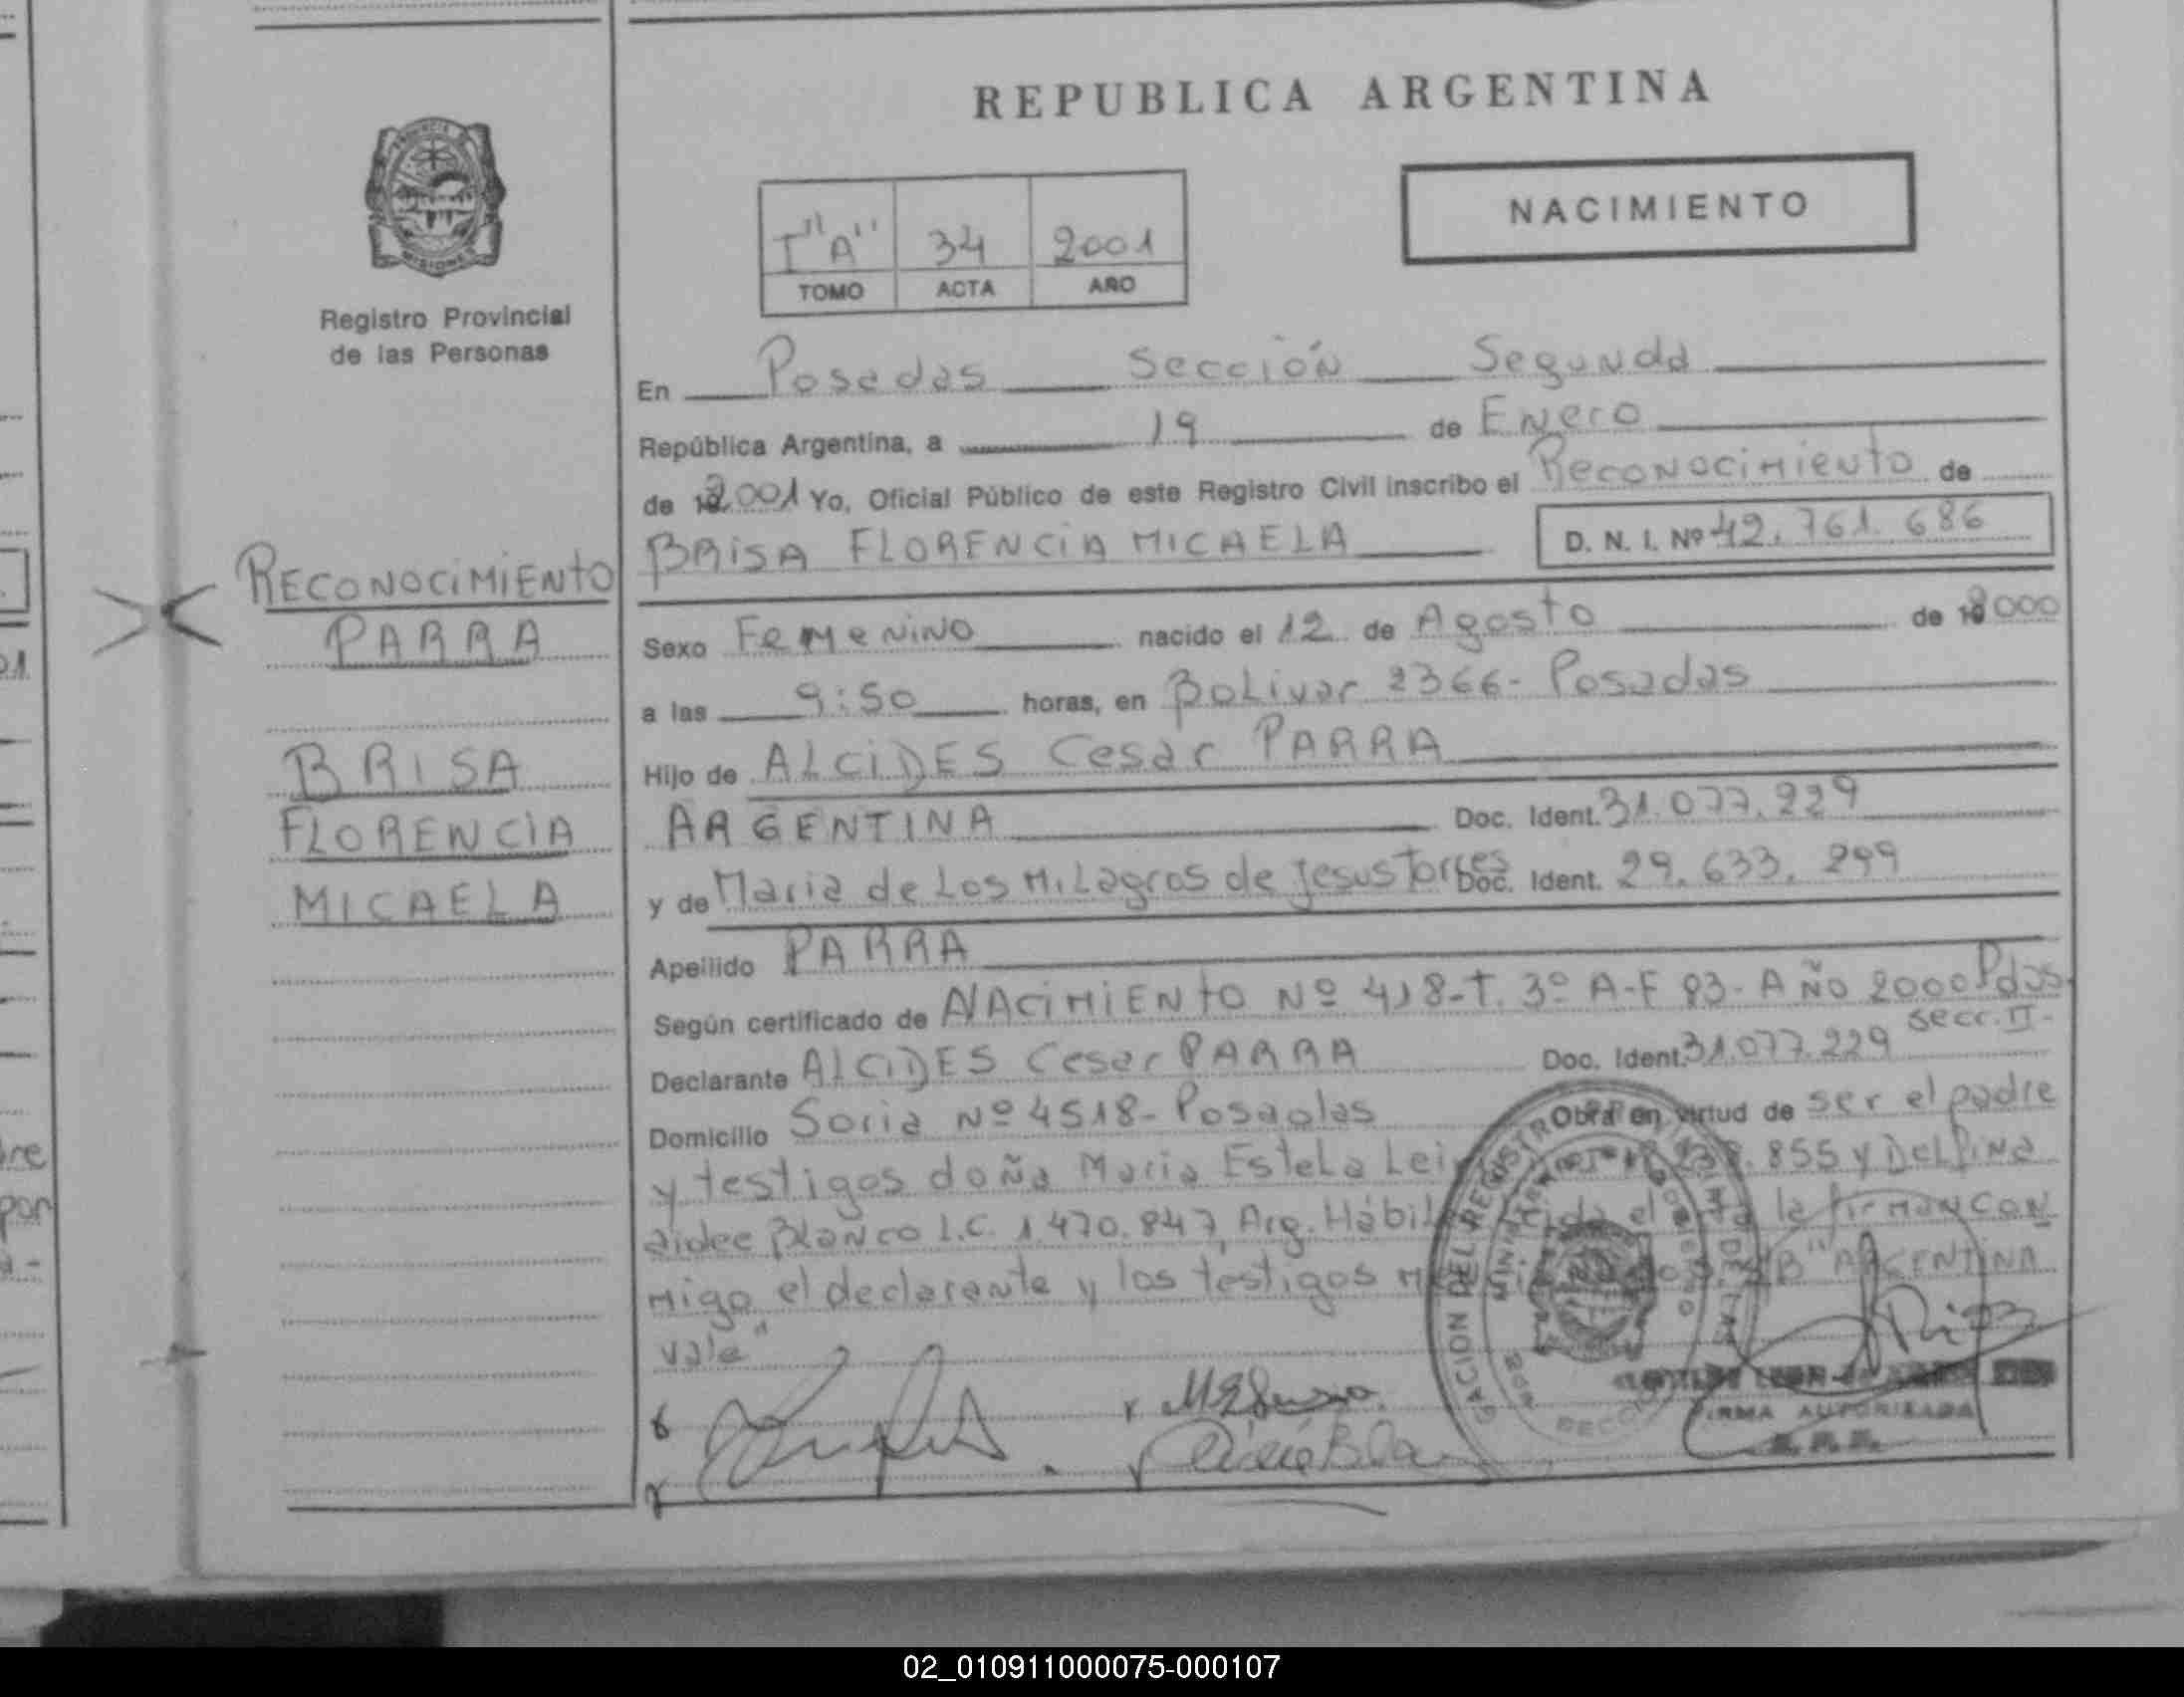 REPUBLICA ARGENTINA
NACIMIENTO
T"A" 34 2001
TOMO ACTA AÑO
PROVINCIA DE
MISIONES
Registro Provincial
de las Personas
RECONOCIMIENTO
PARRA
BRISA
FLORENCIA
MICAELA
En Posadas Sección Segunda
República Argentina, a 19 de Enero
de 2001 Yo, Oficial Público de este Registro Civil inscribo el Reconocimiento de
BRISA FLORENCIA MICAELA D. N. I. Nº 42.761.686
Sexo Femenino nacido el 12 de Agosto de 2000
a las 9:50 horas, en Bolivar 2366- Posadas
Hijo de ALCIDES Cesar PARRA
ARGENTINA Doc. Ident. 31.077.229
y de Maria de Los Milagros de Jesus Torres Doc. Ident. 29.633.299
Apellido PARRA
Según certificado de NACIMIENTO Nº 418-T. 3º A-F 93- AÑO 2000 Pdas
secc. II-
Declarante ALCIDES Cesar PARRA Doc. Ident. 31.077.229
Domicilio Soria Nº 4518- Posadas Obra en virtud de ser el padre
y testigos doña Maria Estela 855 y Delfina
aidee Blanco L.C. 1.470.847, Arg. Hábil el la firman con
migo el declarante y los testigos "ARGENTINA
vale"
FIRMA AUTORIZADA
02_010911000075-000107